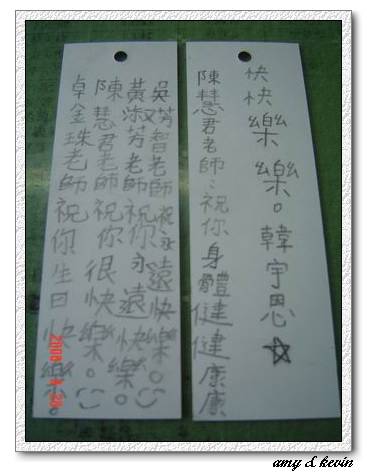 卓金珠老師祝你生日快樂。
陳慧君老師祝你很快樂。
黃淑芳老師祝你永遠快樂。
吳芳智老師祝永遠快樂。
陳慧君老師:祝你身體健健康康
快快樂樂。韓宇思☆
amy & kevin